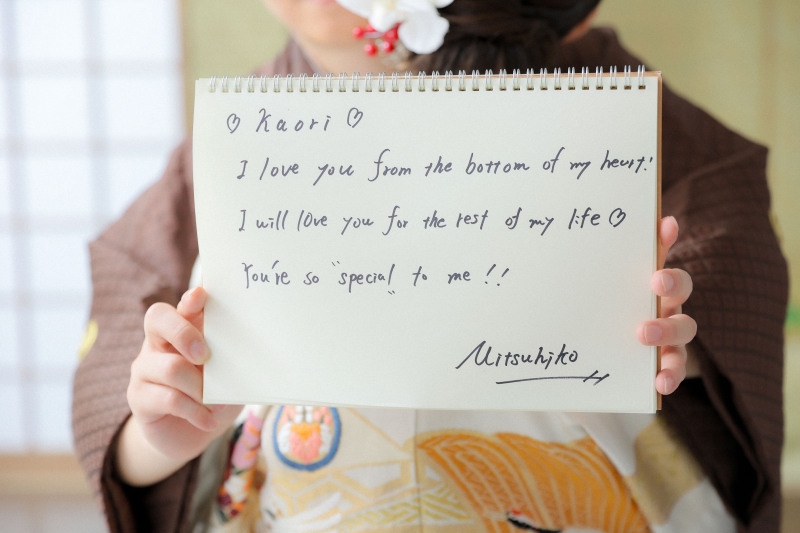 ♡ Kaori ♡
I love you from the bottom of my heart!
I will love you for the rest of my life ♡
You're so "special" to me !!
Mitsuhiko